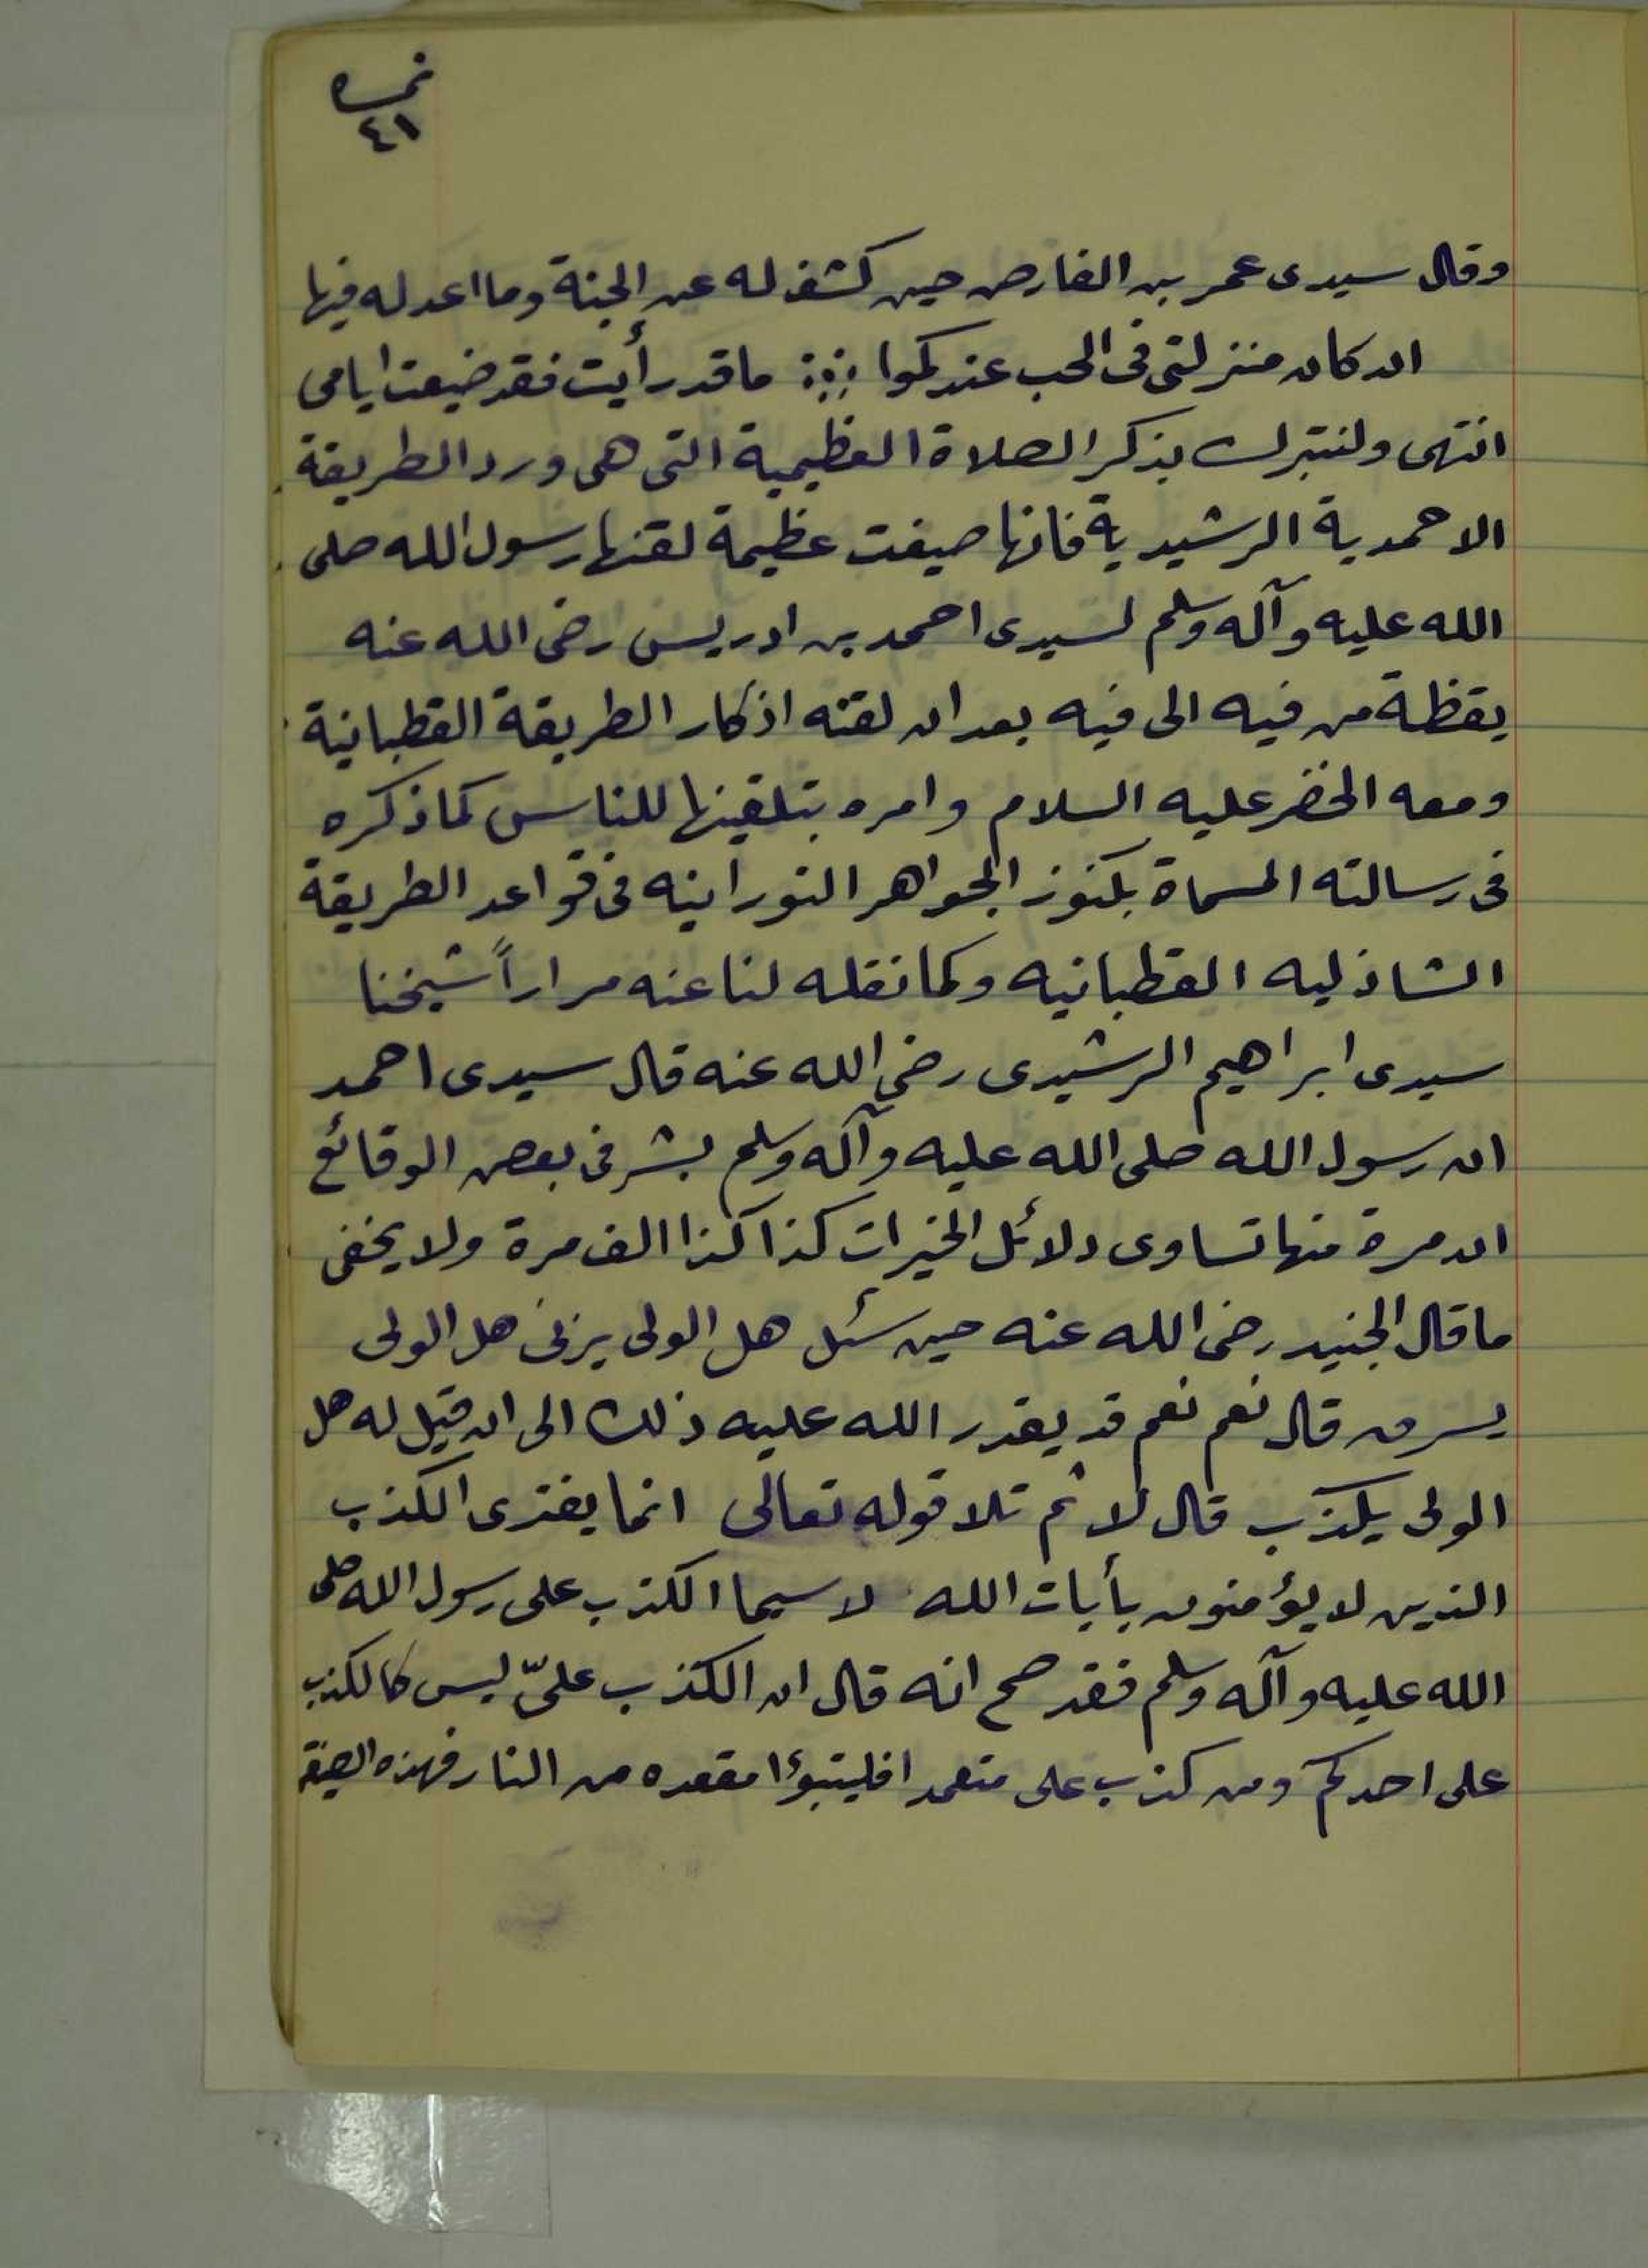 نمره
٤١
وقال سيدى عمر بن الفارض حين كشف له عن الجنة وما اعد له فيها
ان كان منزلتى فى الحب عندكموا ∴ ما قد رأيت فقد ضيعت ايامى
انتهى ولنتبرك بذكر الصلاة العظيمية التى هى ورد الطريقة
الاحمدية الرشيدية فانها صيغت عظيمة لقنها رسول الله صلى
الله عليه وآله وسلم لسيدى احمد بن ادريس رضى الله عنه
يقظة من فيه الى فيه بعد ان لقنه اذكار الطريقة القطبانية
ومعه الخضر عليه السلام وامره بتلقينها للناس كما ذكره
فى رسالته المسماة بكنوز الجواهر النورانيه فى قواعد الطريقة
الشاذليه القطبانيه وكما نقله لنا عنه مراراً شيخنا
سيدى ابراهيم الرشيدى رضي الله عنه قال سيدى احمد
ان رسول الله صلى الله عليه وآله وسلم بشر فى بعض الوقائع
ان مرة منها تساوى دلائل الخيرات كذا كذا الف مرة ولا يخفى
ما قال الجنيد رضى الله عنه حين سئل هل الولى يزنى هل الولى
يسرق قال نعم نعم قد يقدر الله عليه ذلك الى ان قيل له هل
الولى يكذب قال لا ثم تلا قوله تعالى انما يفترى الكذب
الذين لا يؤمنون بأيات الله لا سيما الكذب على رسول الله صلى
الله عليه وآله وسلم فقد صح انه قال ان الكذب علىّ ليس كالكذب
على احدكم ومن كذب على متعمدا فليتبوؤا مقعده من النار فهذه الصيغة